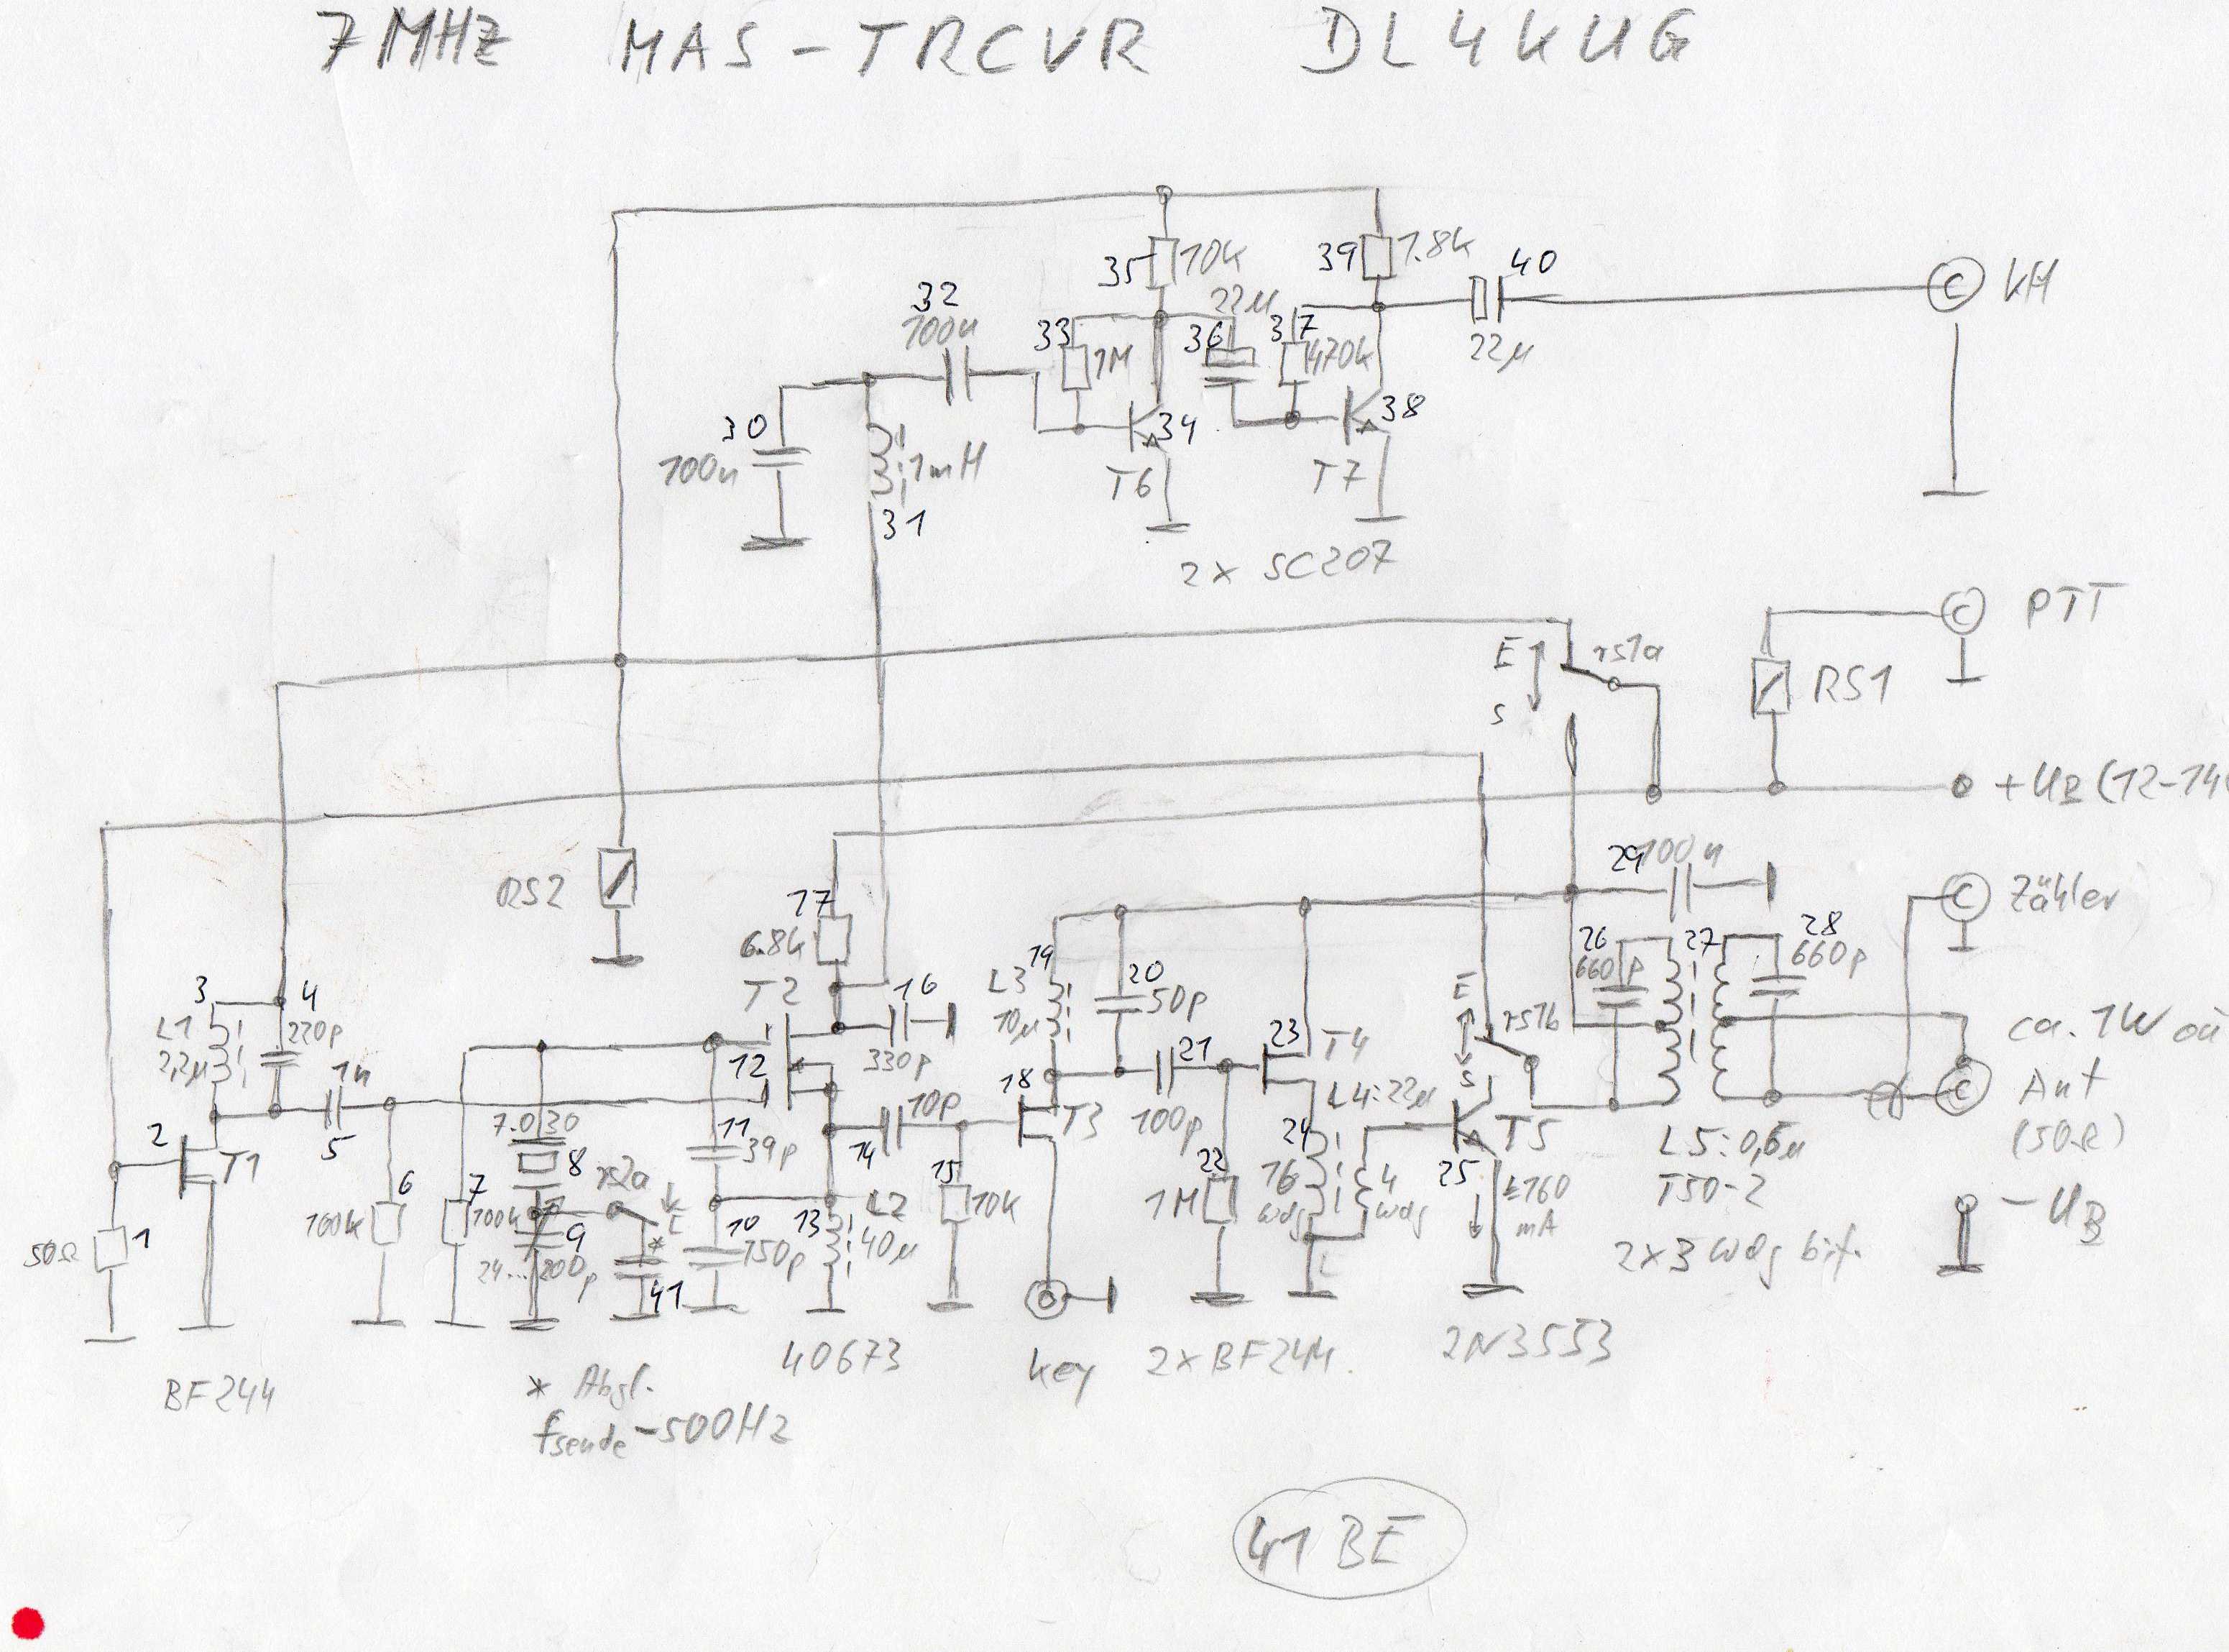 7MHz MAS-TRCVR DL4KUG
35 10k
39 1.8k
40
22µ
KH
32
100n
33
1M
36
22µ
37
470k
30
100n
1mH
31
34
T6
38
T7
2x SC207
PTT
E
S
rs1a
RS1
+UB (12-14
RS2
17
6.8k
T2
16
330p
29 100n
Zähler
3
4
L1
2,2µ
220p
1n
5
2
T1
1
50Ω
BF244
6
100k
7
100k
7.030
8
9
24...200p
rs2a
E
*
41
12
11
39p
10
150p
13
L2
40µ
14
10p
15
10k
40673
* Abgl.
fsende -500Hz
19
L3
10µ
20
50p
18
T3
key
21
100p
22
1M
23
T4
L4:22µ
24
16
wdg
4
wdg
2xBF244
E
S
rs1b
T5
25
160
mA
2N3553
26
660p
27
28
660p
L5:0,6µ
T50-2
2x3 wdg bif.
ca. 1W
Ant
(50Ω)
-UB
41 BE